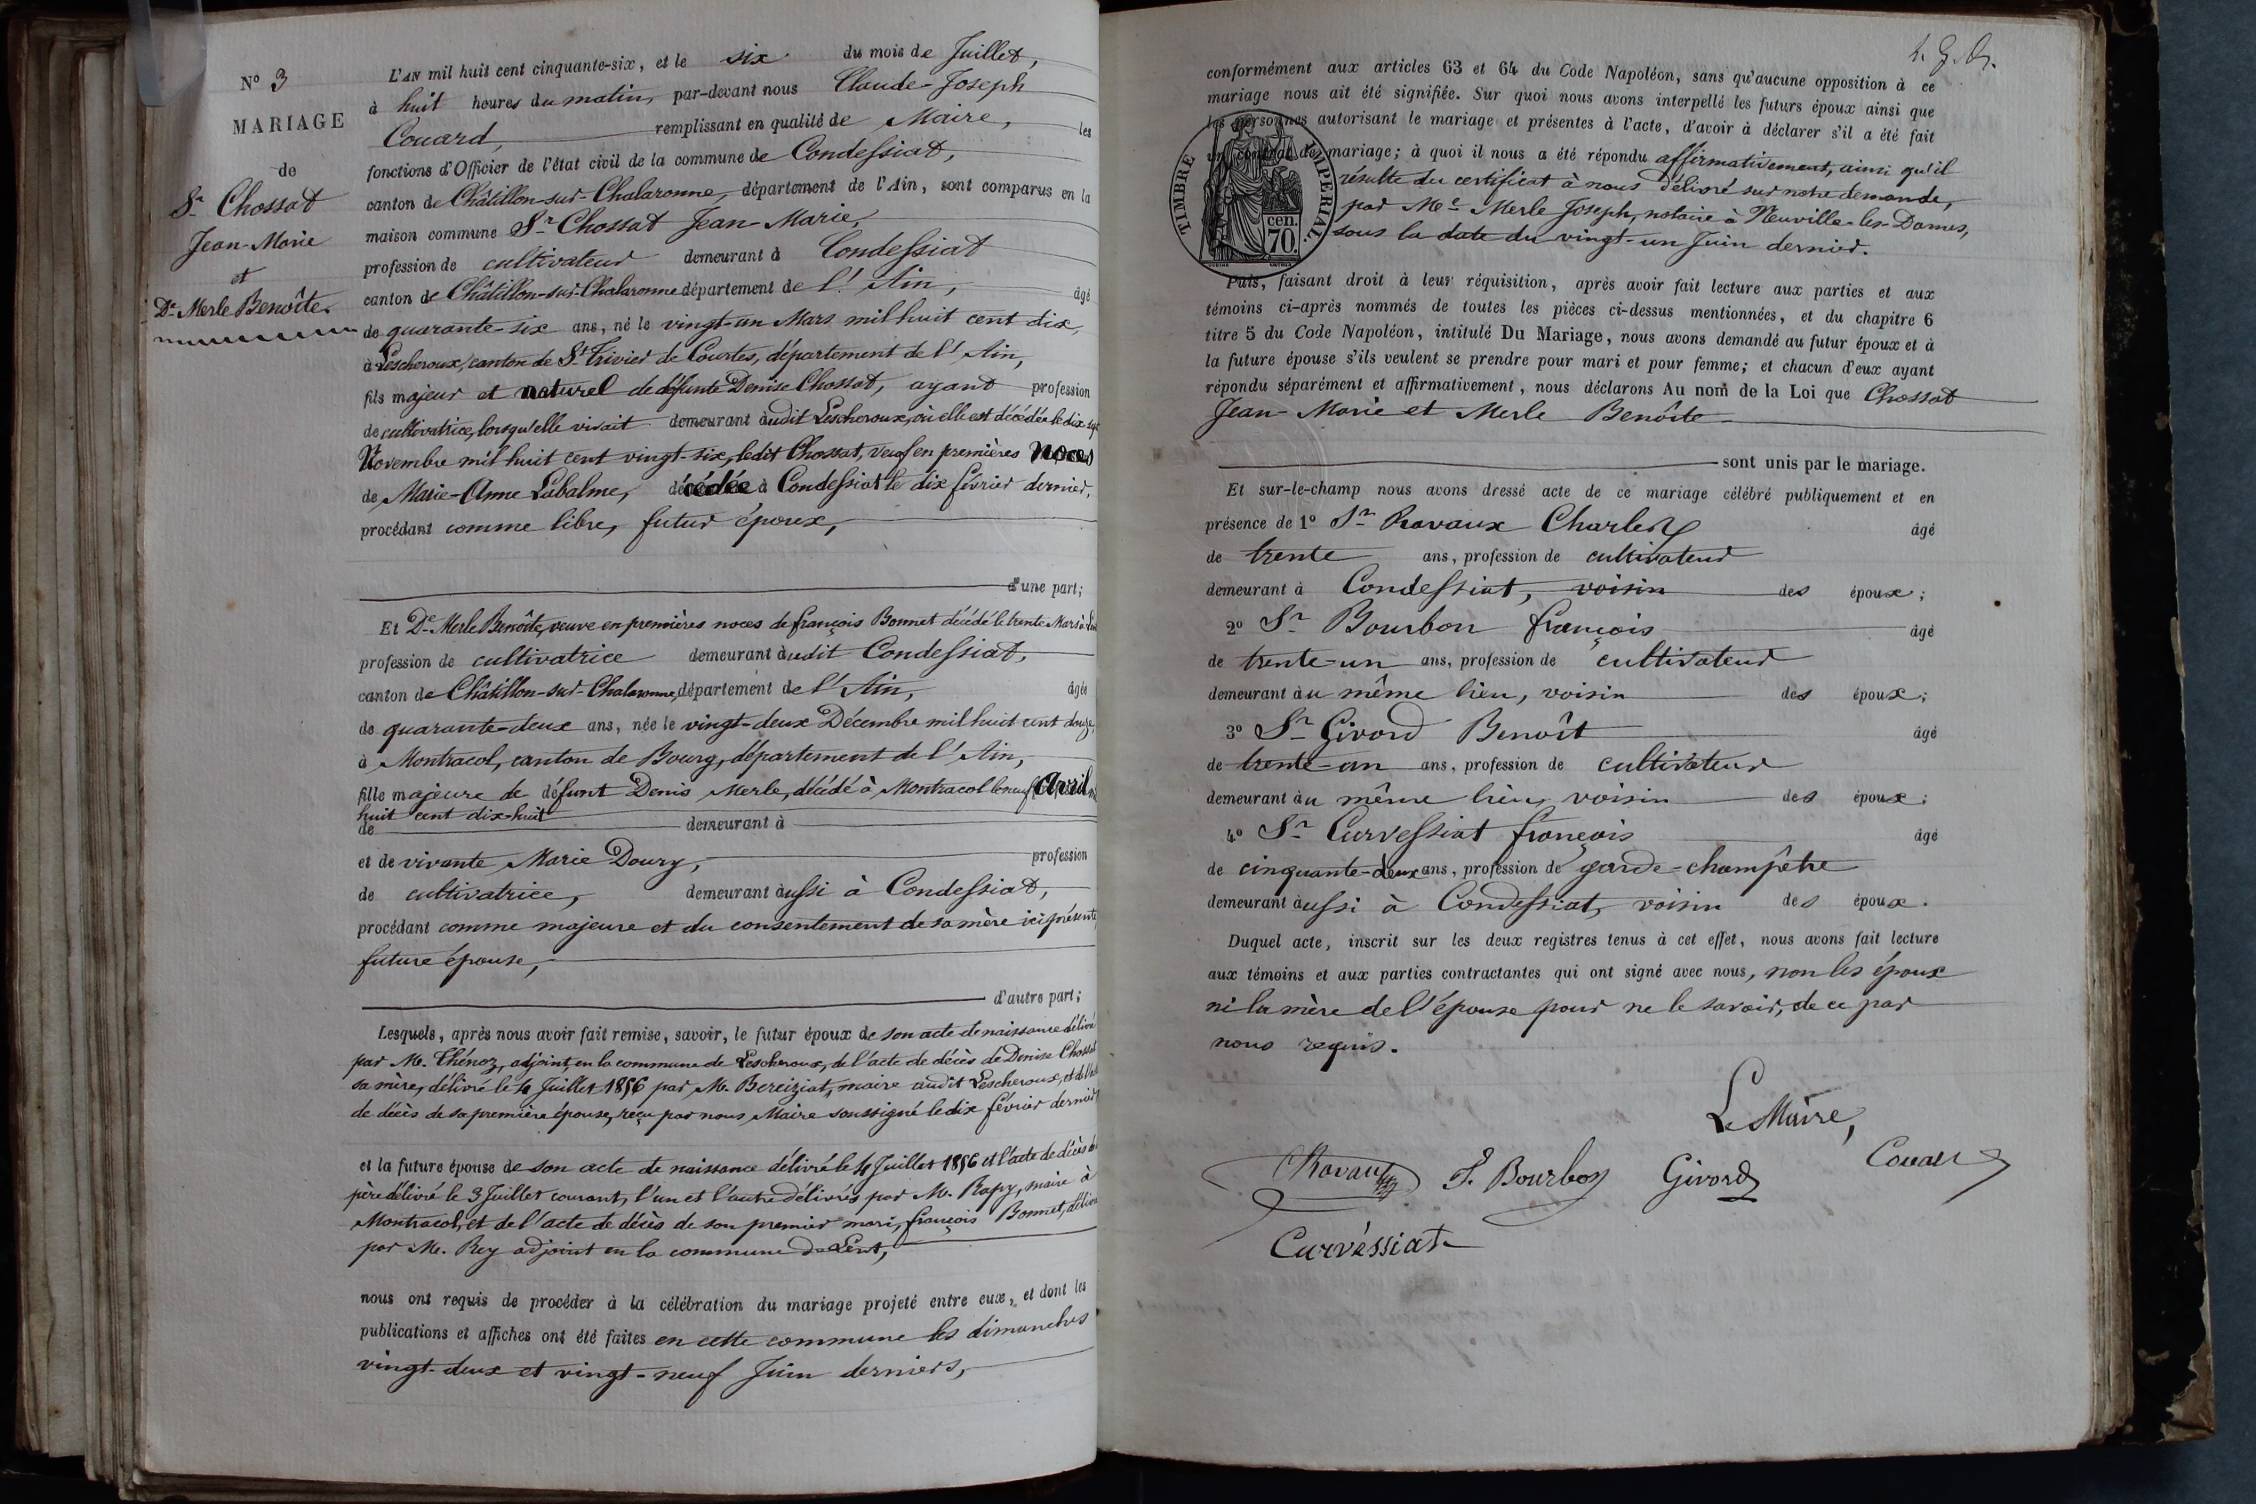 N° 3
MARIAGE
de
Sr Chossat
Jean-Marie
et
De Merle Benoîte.
L'AN mil huit cent cinquante-six, et le six du mois de Juillet,
à huit heures du matin, par-devant nous Claude-Joseph
Couard, remplissant en qualité de Maire, les
fonctions d'Officier de l'état civil de la commune de Condessiat,
canton de Châtillon-sur-Chalaronne, département de l'Ain, sont comparus en la
maison commune Sr Chossat Jean-Marie,
profession de cultivateur demeurant à Condessiat
canton de Châtillon-sur-Chalaronne département de l'Ain, âgé
de quarante-six ans, né le vingt-un Mars mil huit cent dix,
à Lescheroux, canton de St Trivier de Courtes, département de l'Ain,
fils majeur et naturel de défunte Denise Chossat, ayant profession
de cultivatrice, lorsqu'elle vivait demeurant audit Lescheroux, où elle est décédée le dix sept
Novembre mil huit cent vingt-six, ledit Chossat, veuf en premières noces
de Marie-Anne Labalme, décédée à Condessiat le dix février dernier,
procédant comme libre, futur époux,
d'une part;
Et De Merle Benoîte, veuve en premières noces de françois Bonnet décédé le trente Mars à
profession de cultivatrice demeurant audit Condessiat,
canton de Châtillon-sur-Chalaronne, département de l'Ain, âgée
de quarante-deux ans, née le vingt-deux Décembre mil huit cent douze,
à Montracol, canton de Bourg, département de l'Ain,
fille majeure de défunt Denis Merle, décédé à Montracol le neuf Avril mil
huit cent dix-huit
de demeurant à
et de vivante Marie Doury, profession
de cultivatrice, demeurant aussi à Condessiat,
procédant comme majeure et du consentement de sa mère ici présente,
future épouse,
d'autre part;
Lesquels, après nous avoir fait remise, savoir, le futur époux de son acte de naissance délivré
par M. Thénoz, adjoint en la commune de Lescheroux, de l'acte de décès de Denise Chossat
sa mère, délivré le 4 Juillet 1856 par M. Bereiziat, maire audit Lescheroux, et de l'acte
de décès de sa première épouse, reçu par nous Maire soussigné le dix février dernier
et la future épouse de son acte de naissance délivré le 4 Juillet 1856 et l'acte de décès de
père délivré le 3 Juillet courant, l'un et l'autre délivrés par M. Rapy, maire à
Montracol, et de l'acte de décès de son premier mari, françois Bonnet, délivré
par M. Rey adjoint en la commune de Lent,
nous ont requis de procéder à la célébration du mariage projeté entre eux, et dont les
publications et affiches ont été faites en cette commune les dimanches
vingt-deux et vingt-neuf Juin derniers,
conformément aux articles 63 et 64 du Code Napoléon, sans qu'aucune opposition à ce
mariage nous ait été signifiée. Sur quoi nous avons interpellé les futurs époux ainsi que
les personnes autorisant le mariage et présentes à l'acte, d'avoir à déclarer s'il a été fait
un contrat de mariage; à quoi il nous a été répondu affirmativement, ainsi qu'il
résulte du certificat à nous délivré sur notre demande,
par Me Merle Joseph, notaire à Neuville-les-Dames,
sous la date du vingt-un Juin dernier.
TIMBRE IMPERIAL.
70 cen.
Puis, faisant droit à leur réquisition, après avoir fait lecture aux parties et aux
témoins ci-après nommés de toutes les pièces ci-dessus mentionnées, et du chapitre 6
titre 5 du Code Napoléon, intitulé Du Mariage, nous avons demandé au futur époux et à
la future épouse s'ils veulent se prendre pour mari et pour femme; et chacun d'eux ayant
répondu séparément et affirmativement, nous déclarons Au nom de la Loi que Chossat
Jean-Marie et Merle Benoîte
sont unis par le mariage.
Et sur-le-champ nous avons dressé acte de ce mariage célébré publiquement et en
présence de 1° Sr Ravaux Charles âgé
de trente ans, profession de cultivateur
demeurant à Condessiat, voisin des époux;
2° Sr Bourbon françois âgé
de trente-un ans, profession de cultivateur
demeurant au même lieu, voisin des époux;
3° Sr Givord Benoît âgé
de trente-un ans, profession de cultivateur
demeurant au même lieu, voisin des époux;
4° Sr Curvessiat françois âgé
de cinquante-deux ans, profession de garde-champêtre
demeurant aussi à Condessiat, voisin des époux.
Duquel acte, inscrit sur les deux registres tenus à cet effet, nous avons fait lecture
aux témoins et aux parties contractantes qui ont signé avec nous, non les époux
ni la mère de l'épouse pour ne le savoir, de ce par
nous requis.
Le Maire,
Ravaux F. Bourbon Givord Couard
Curvéssiat